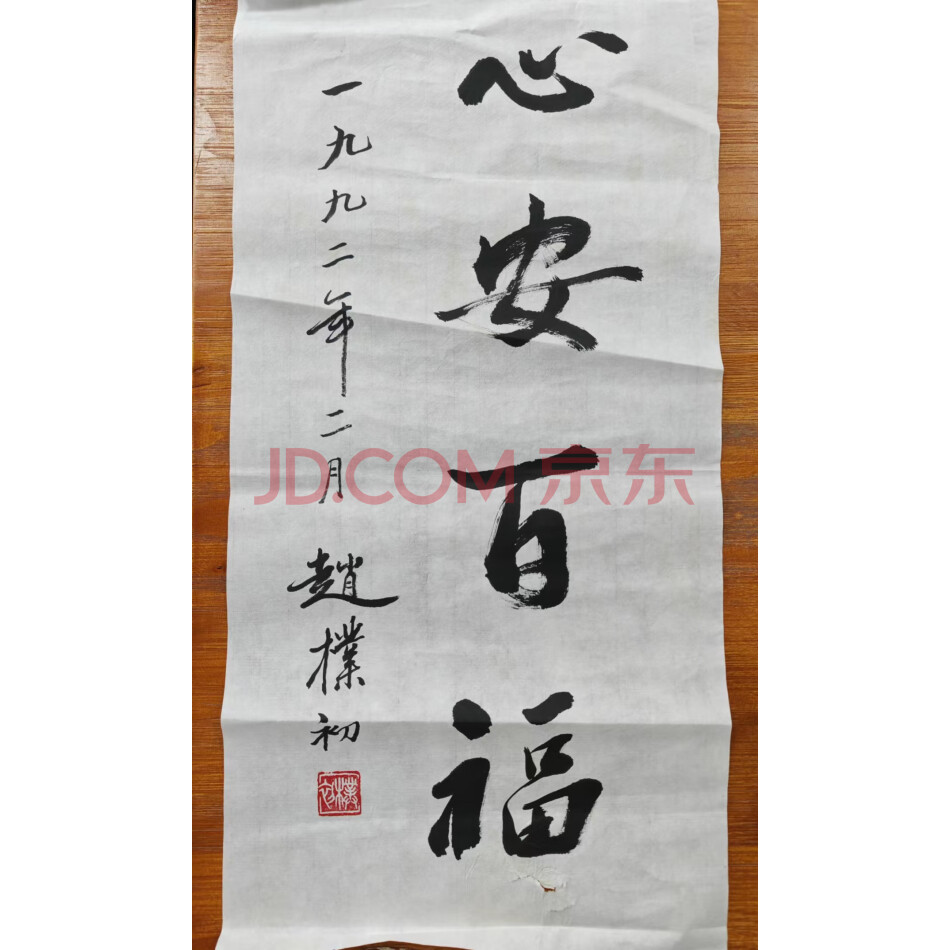 心安百福
一九九二年二月 趙樸初
樸初
JD.COM 京东